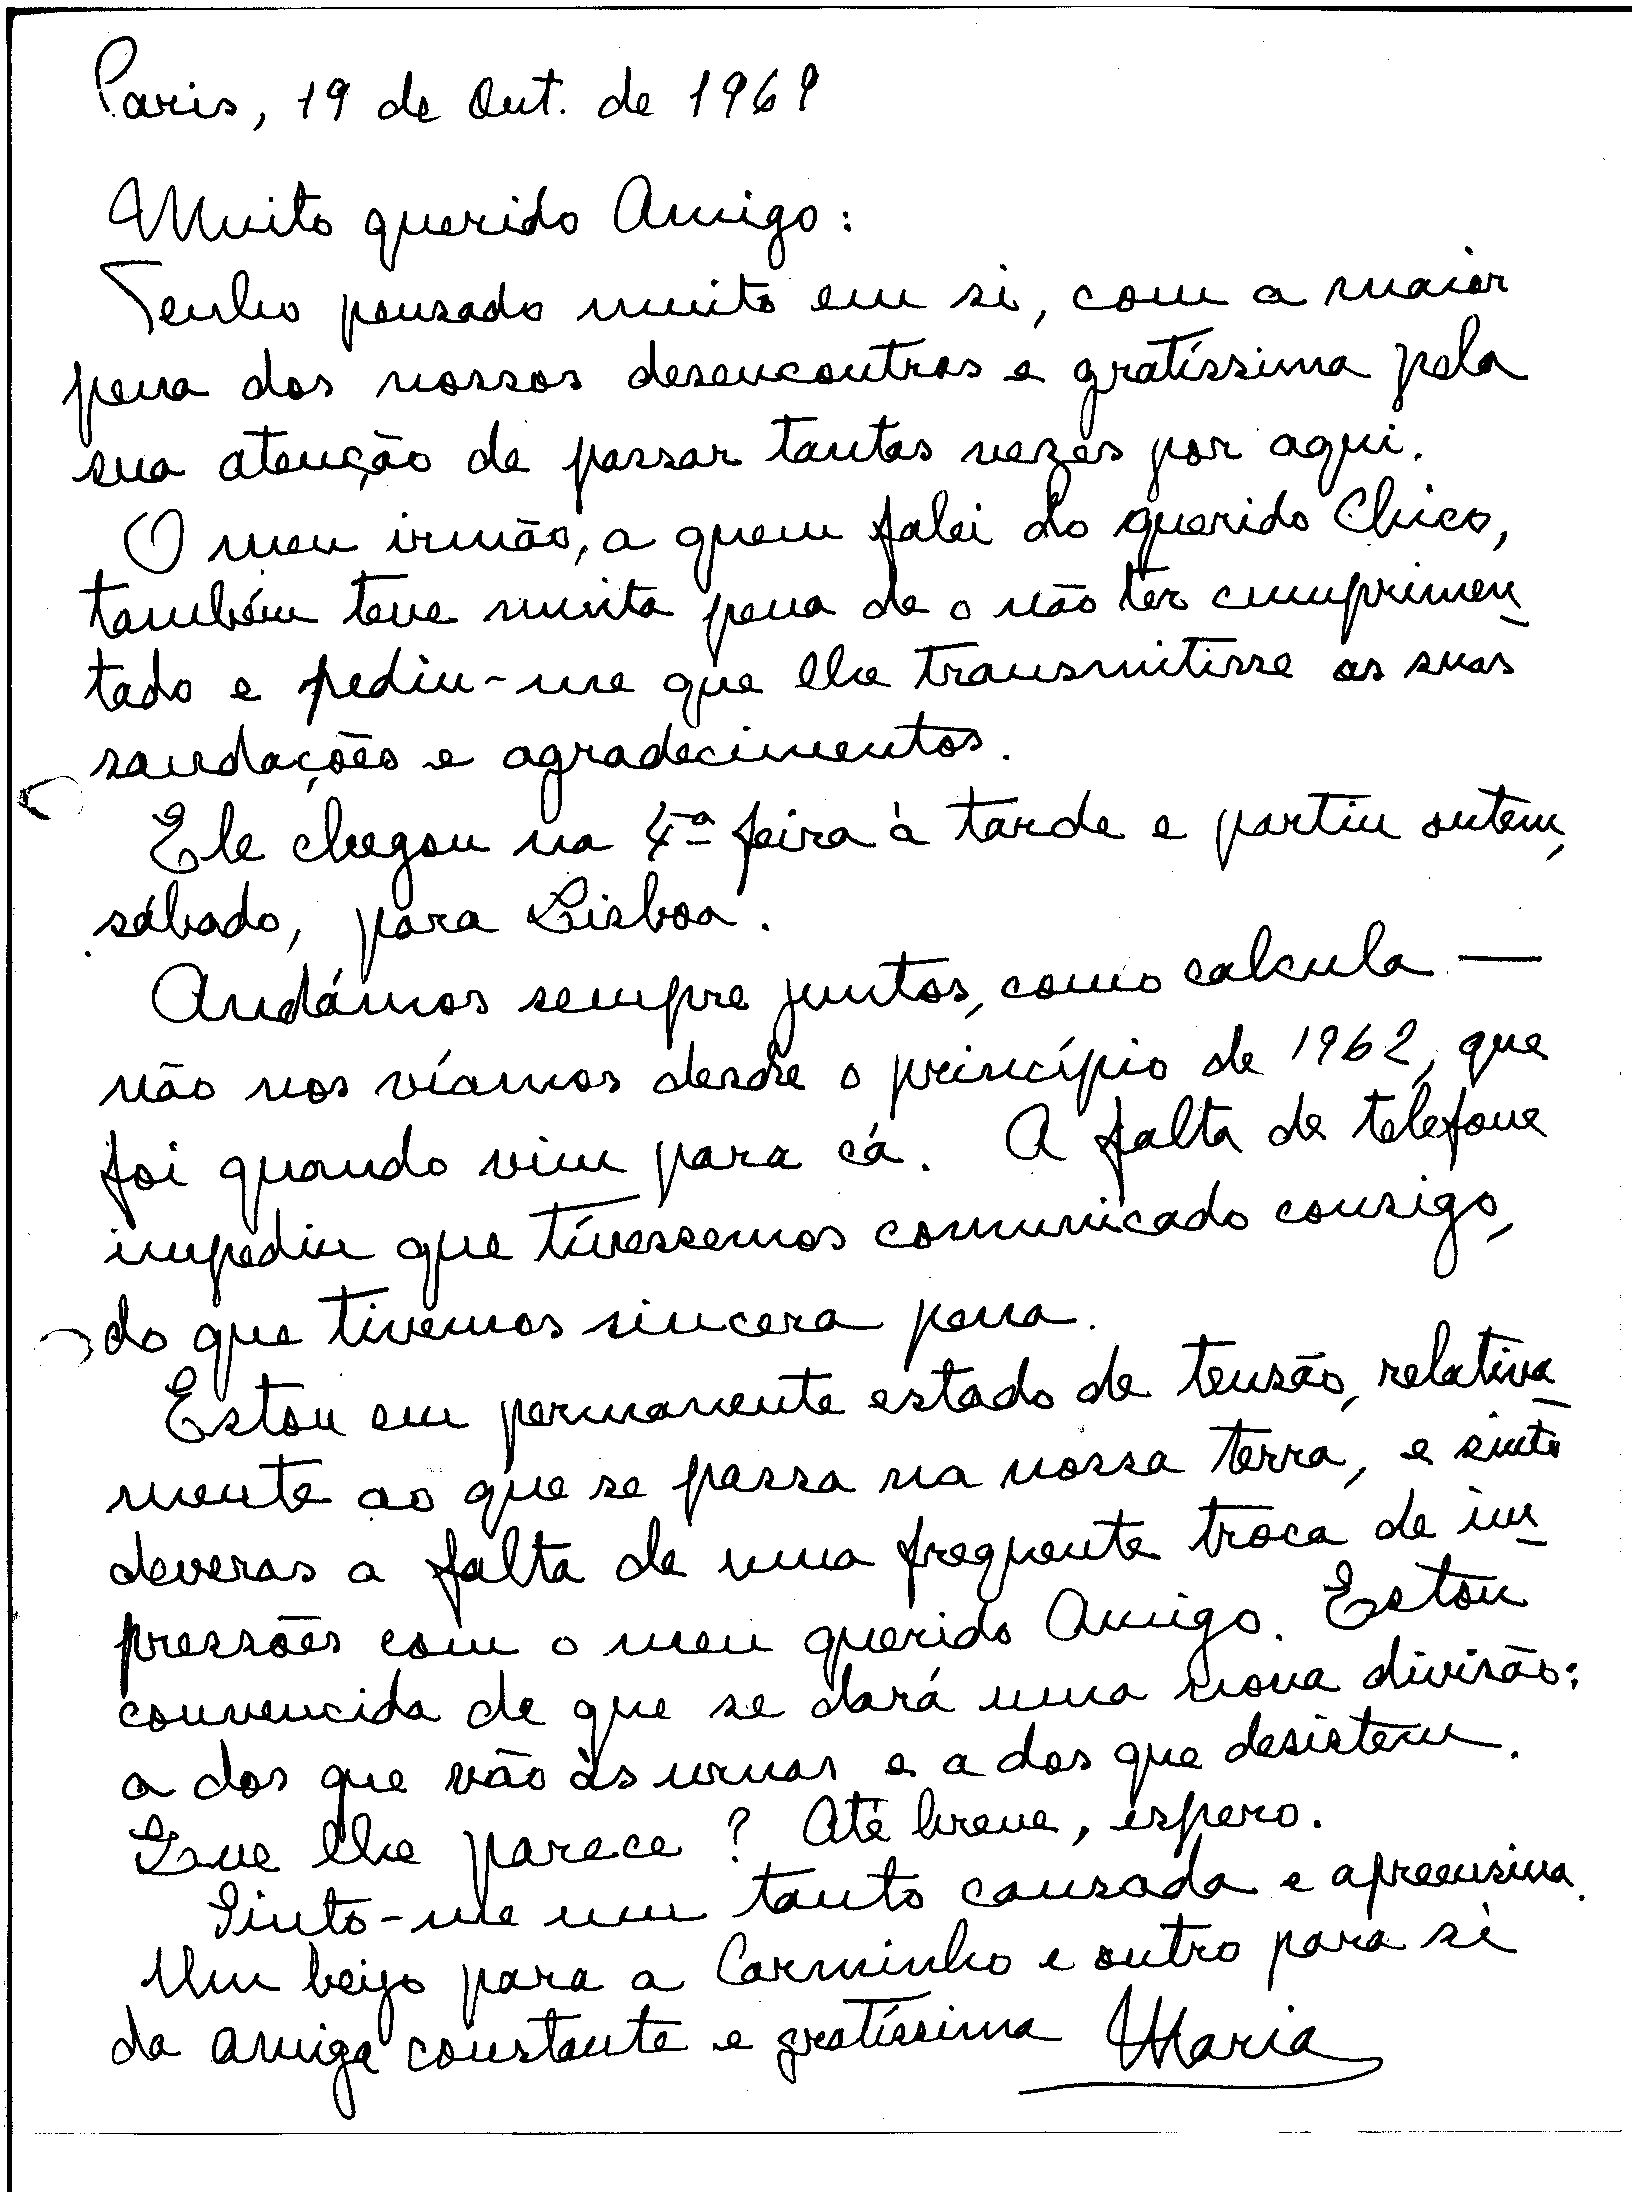 Paris, 19 de Out. de 1969
Muito querido Amigo:
Tenho pensado muito em si, com a maior
pena dos nossos desencontros e gratíssima pela
sua atenção de passar tantas vezes por aqui.
O meu irmão, a quem falei do querido Chico,
também teve muita pena de o não ter cumprimen
tado e pediu-me que lhe transmitisse as suas
saudações e agradecimentos.
Ele chegou na 4ª feira à tarde e partiu ontem,
sábado, para Lisboa.
Andámos sempre juntos, como calcula —
não nos víamos desde o princípio de 1962, que
foi quando vim para cá. A falta de telefone
impediu que tívessemos comunicado consigo,
do que tivemos sincera pena.
Estou em permanente estado de tensão, relativa
mente ao que se passa na nossa terra, e sinto
deveras a falta de uma frequente troca de im
pressões com o meu querido Amigo. Estou
convencida de que se dará uma nova divisão:
a dos que vão às urnas e a dos que desistem.
Que lhe parece? Até breve, espero.
Sinto-me um tanto cansada e apreensiva.
Um beijo para a Carminho e outro para si
da amiga constante e gratíssima Maria